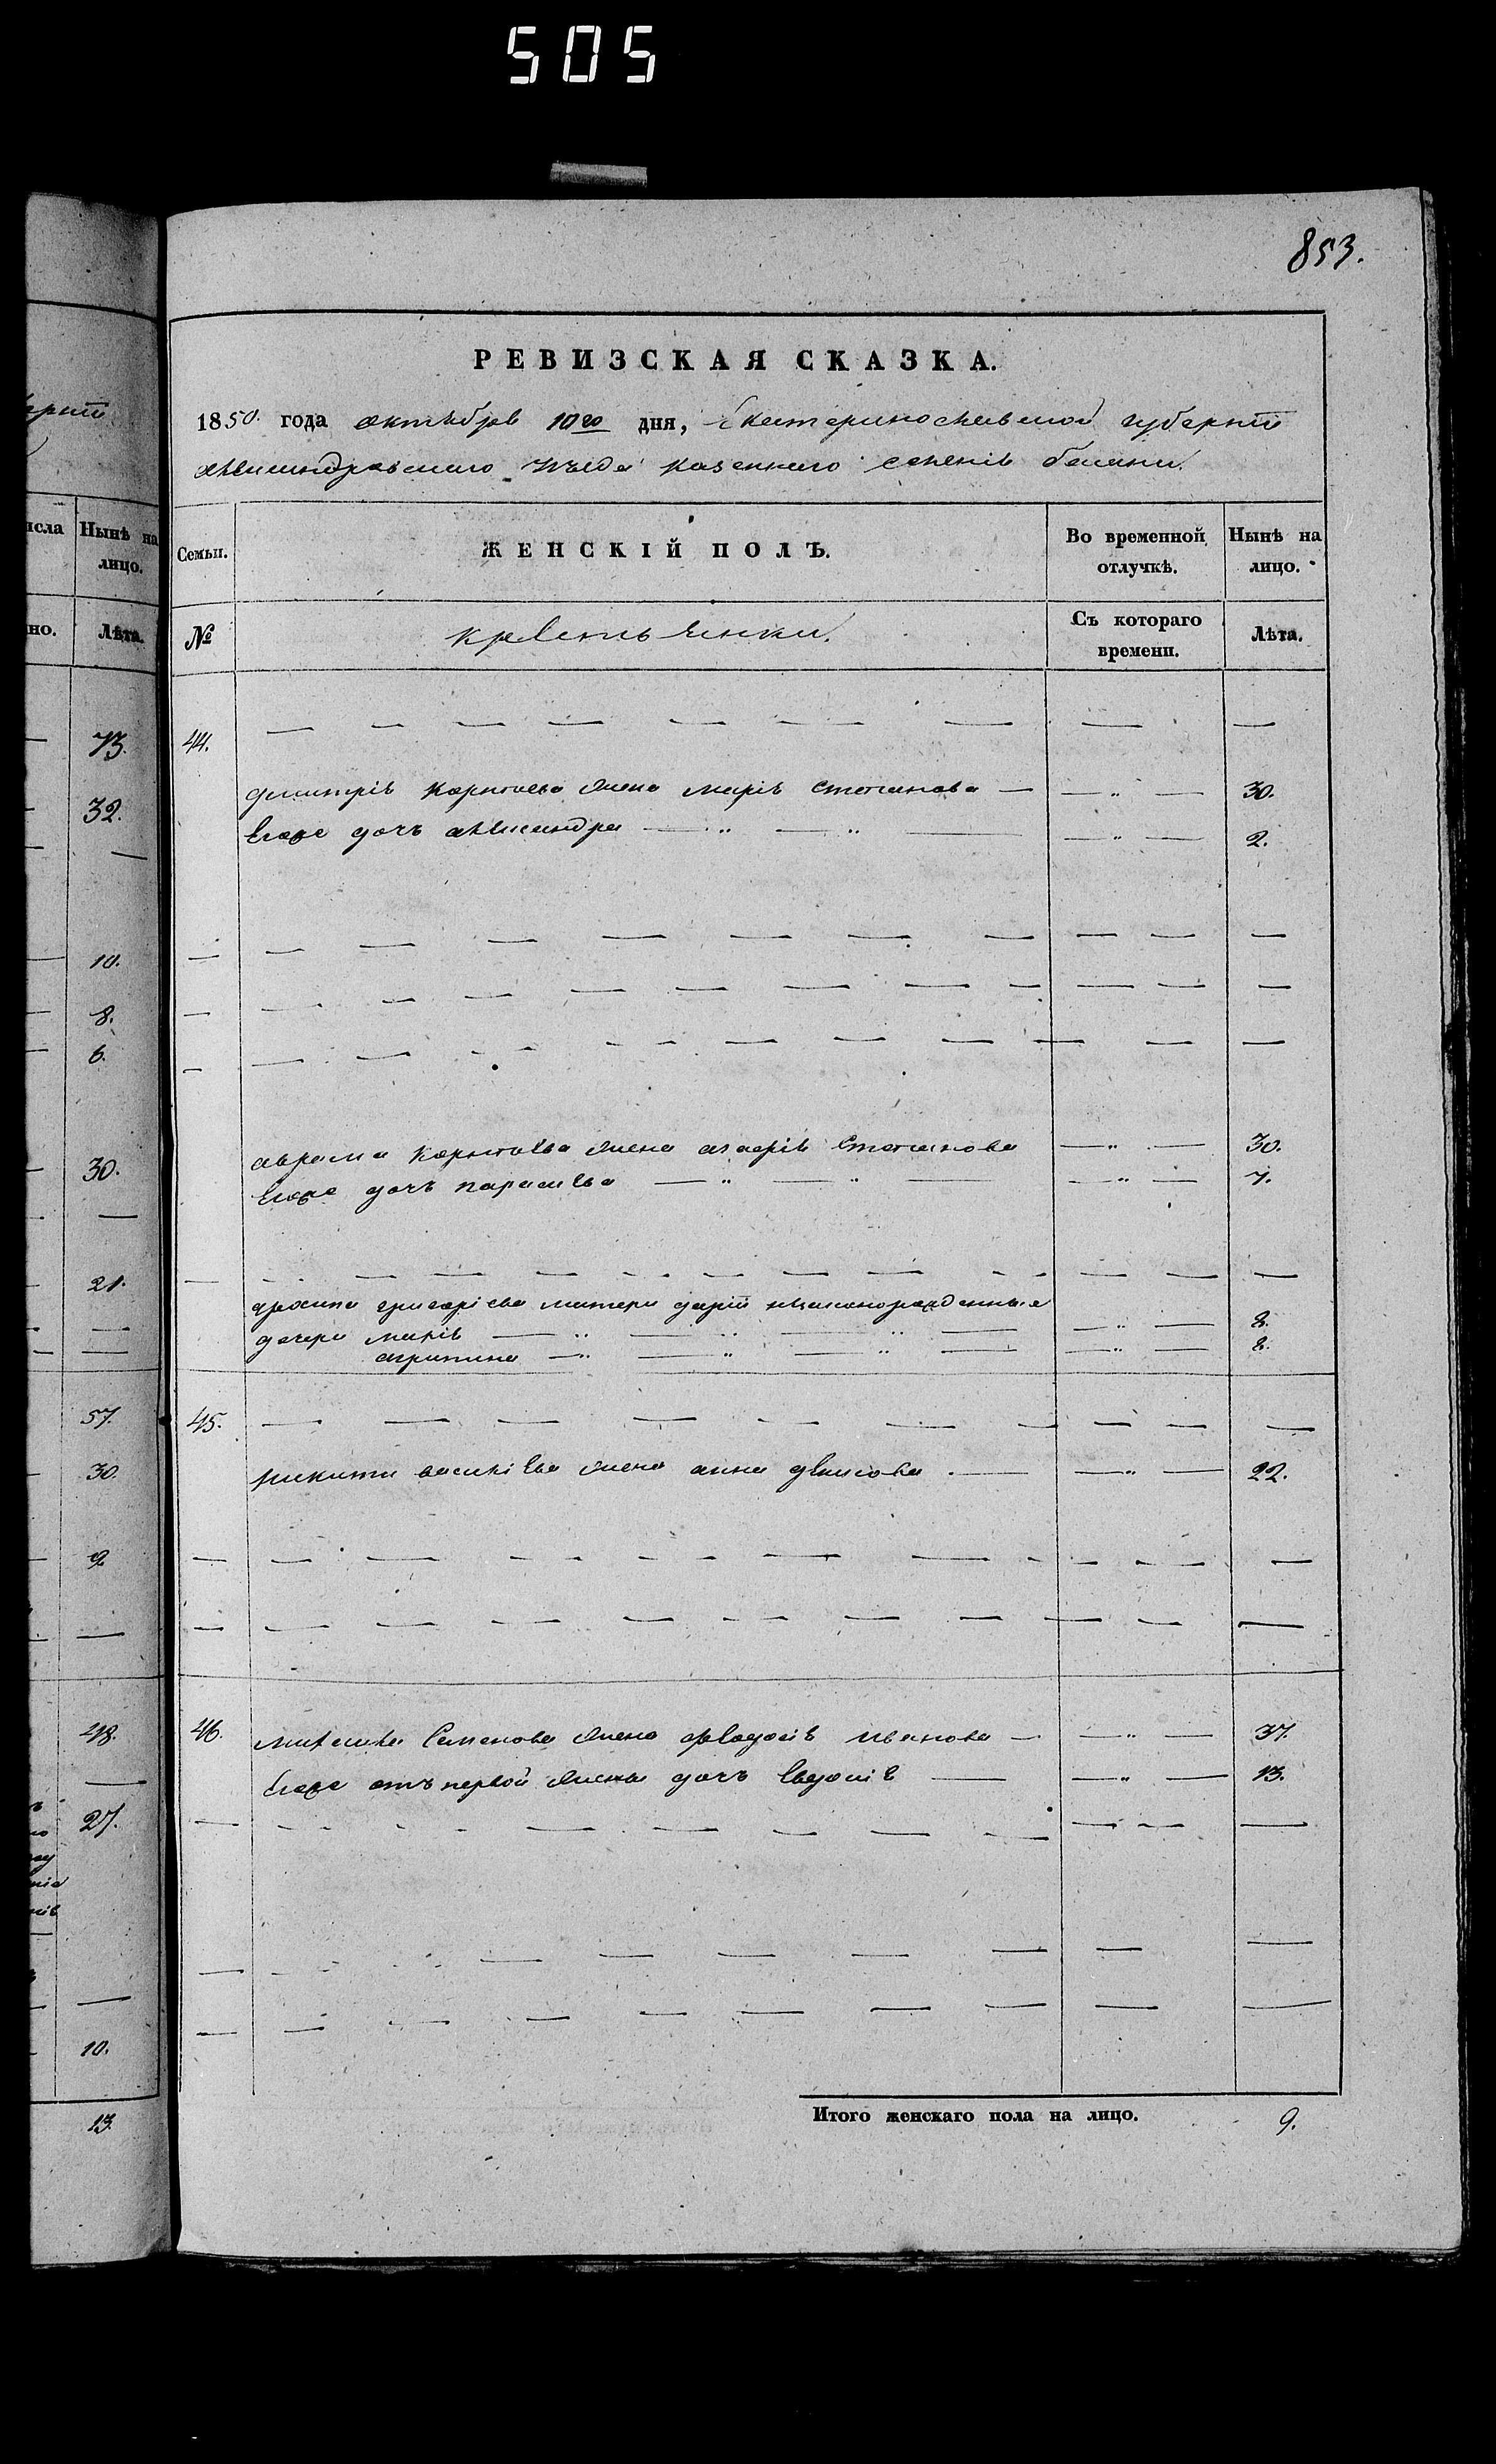 505
853.
РЕВИЗСКАЯ СКАЗКА.
1850. года октября 10го дня, Екатеринославской губерніи
александровскаго уѣзда казеннаго селенія
Семьи. ЖЕНСКІЙ ПОЛЪ. Во временной отлучкѣ. Нынѣ на лицо.
№ крестьянки. Съ котораго времени. Лѣта.
44. — — — — — — — — —
дмитрія жена марія степанова — — „ — 30.
Его же дочь александра — „ — „ — — „ — 2.
— — — — — — — — — — —
— — — — — — — — — — — —
— — — — — — — — — — — —
аврама жена агафія степанова — „ — 30.
Его же дочь параскева — „ — „ — — „ — 7.
— — — — — — — — — — — — —
григоріева матери даріи незаконорожденные
дочери марія — „ — „ — „ — — „ — 8.
агрипина — „ — „ — „ — — „ — 8.
45. — — — — — — — — — —
никити василіева жена анна денисова — — „ — 22.
— — — — — — — — — — — —
— — — — — — — — — — — —
46. Семенова жена феодосія иванова — — „ — 37.
Его же отъ первой жены дочь евдокія — — „ — 13.
— — — — — — — — — — — —
— — — — — — — — — —
— — — — — — — — — —
Итого женскаго пола на лицо. 9.
исла Нынѣ на лицо.
но. Лѣта.
73.
32.
—
10.
8.
6.
30.
—
21.
—
—
57.
30.
9.
—
48.
—
27.
—
10.
13.